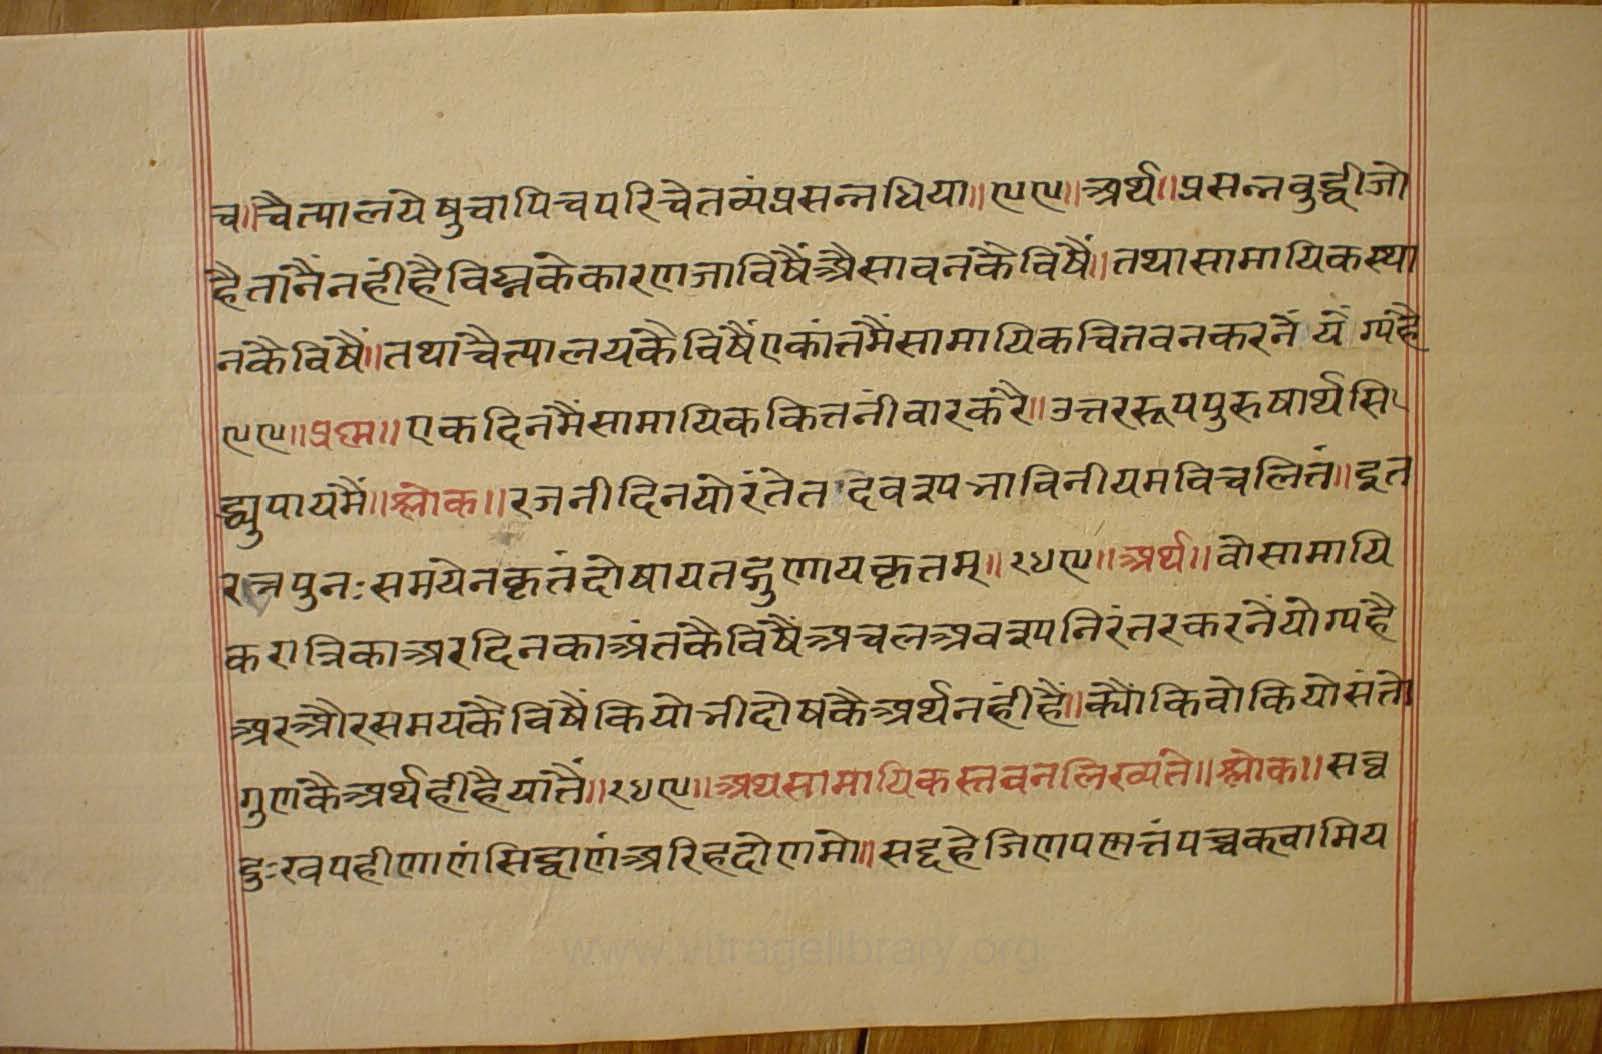 च॥चैत्यालयेषुचापिचपरिचेतव्यंप्रसन्नधिया॥९९॥अर्थ॥प्रसन्नवुद्धीजो
हैतांनैंनहींहैविघ्नकेकारणजाविषैंअैसावनकैविषैं॥तथासामायिकस्था
नकैविषैं॥तथाचैत्यालयकैविषैंएकांतमैंसामायिकचितवनकरनें योग्यहै
९९॥प्रश्न॥एकदिनमैंसामायिककितनीवारकरै॥उत्तररूपपुरुषार्थसि
द्ध्युपायमैं॥श्लोक॥रजनीदिनयोरंतेतदवश्यंभाविनीयमविचलितं॥इत
रत्रपुनःसमयेनकृतंदोषायतद्गुणायकृतम्॥१४९॥अर्थ॥वोसामायि
करात्रिकाअरदिनकाअंतकैविषैंअचलअवश्यनिरंतरकरनेंयोग्यहै
अरऔरसमयकैविषैंकियोभीदोषकैअर्थनहींहैं॥क्यौंकिवोकियोसंतो
गुणकैअर्थहीहैयातैं॥१४९॥अथसामायिकस्तवनलिख्यंते॥श्लोक॥सव्व
दुःखपहीणाणंसिद्धाणंअरिहदोणमो॥सद्दहेजिणपण्णत्तंपच्चक्वामिय
www.vitragelibrary.org